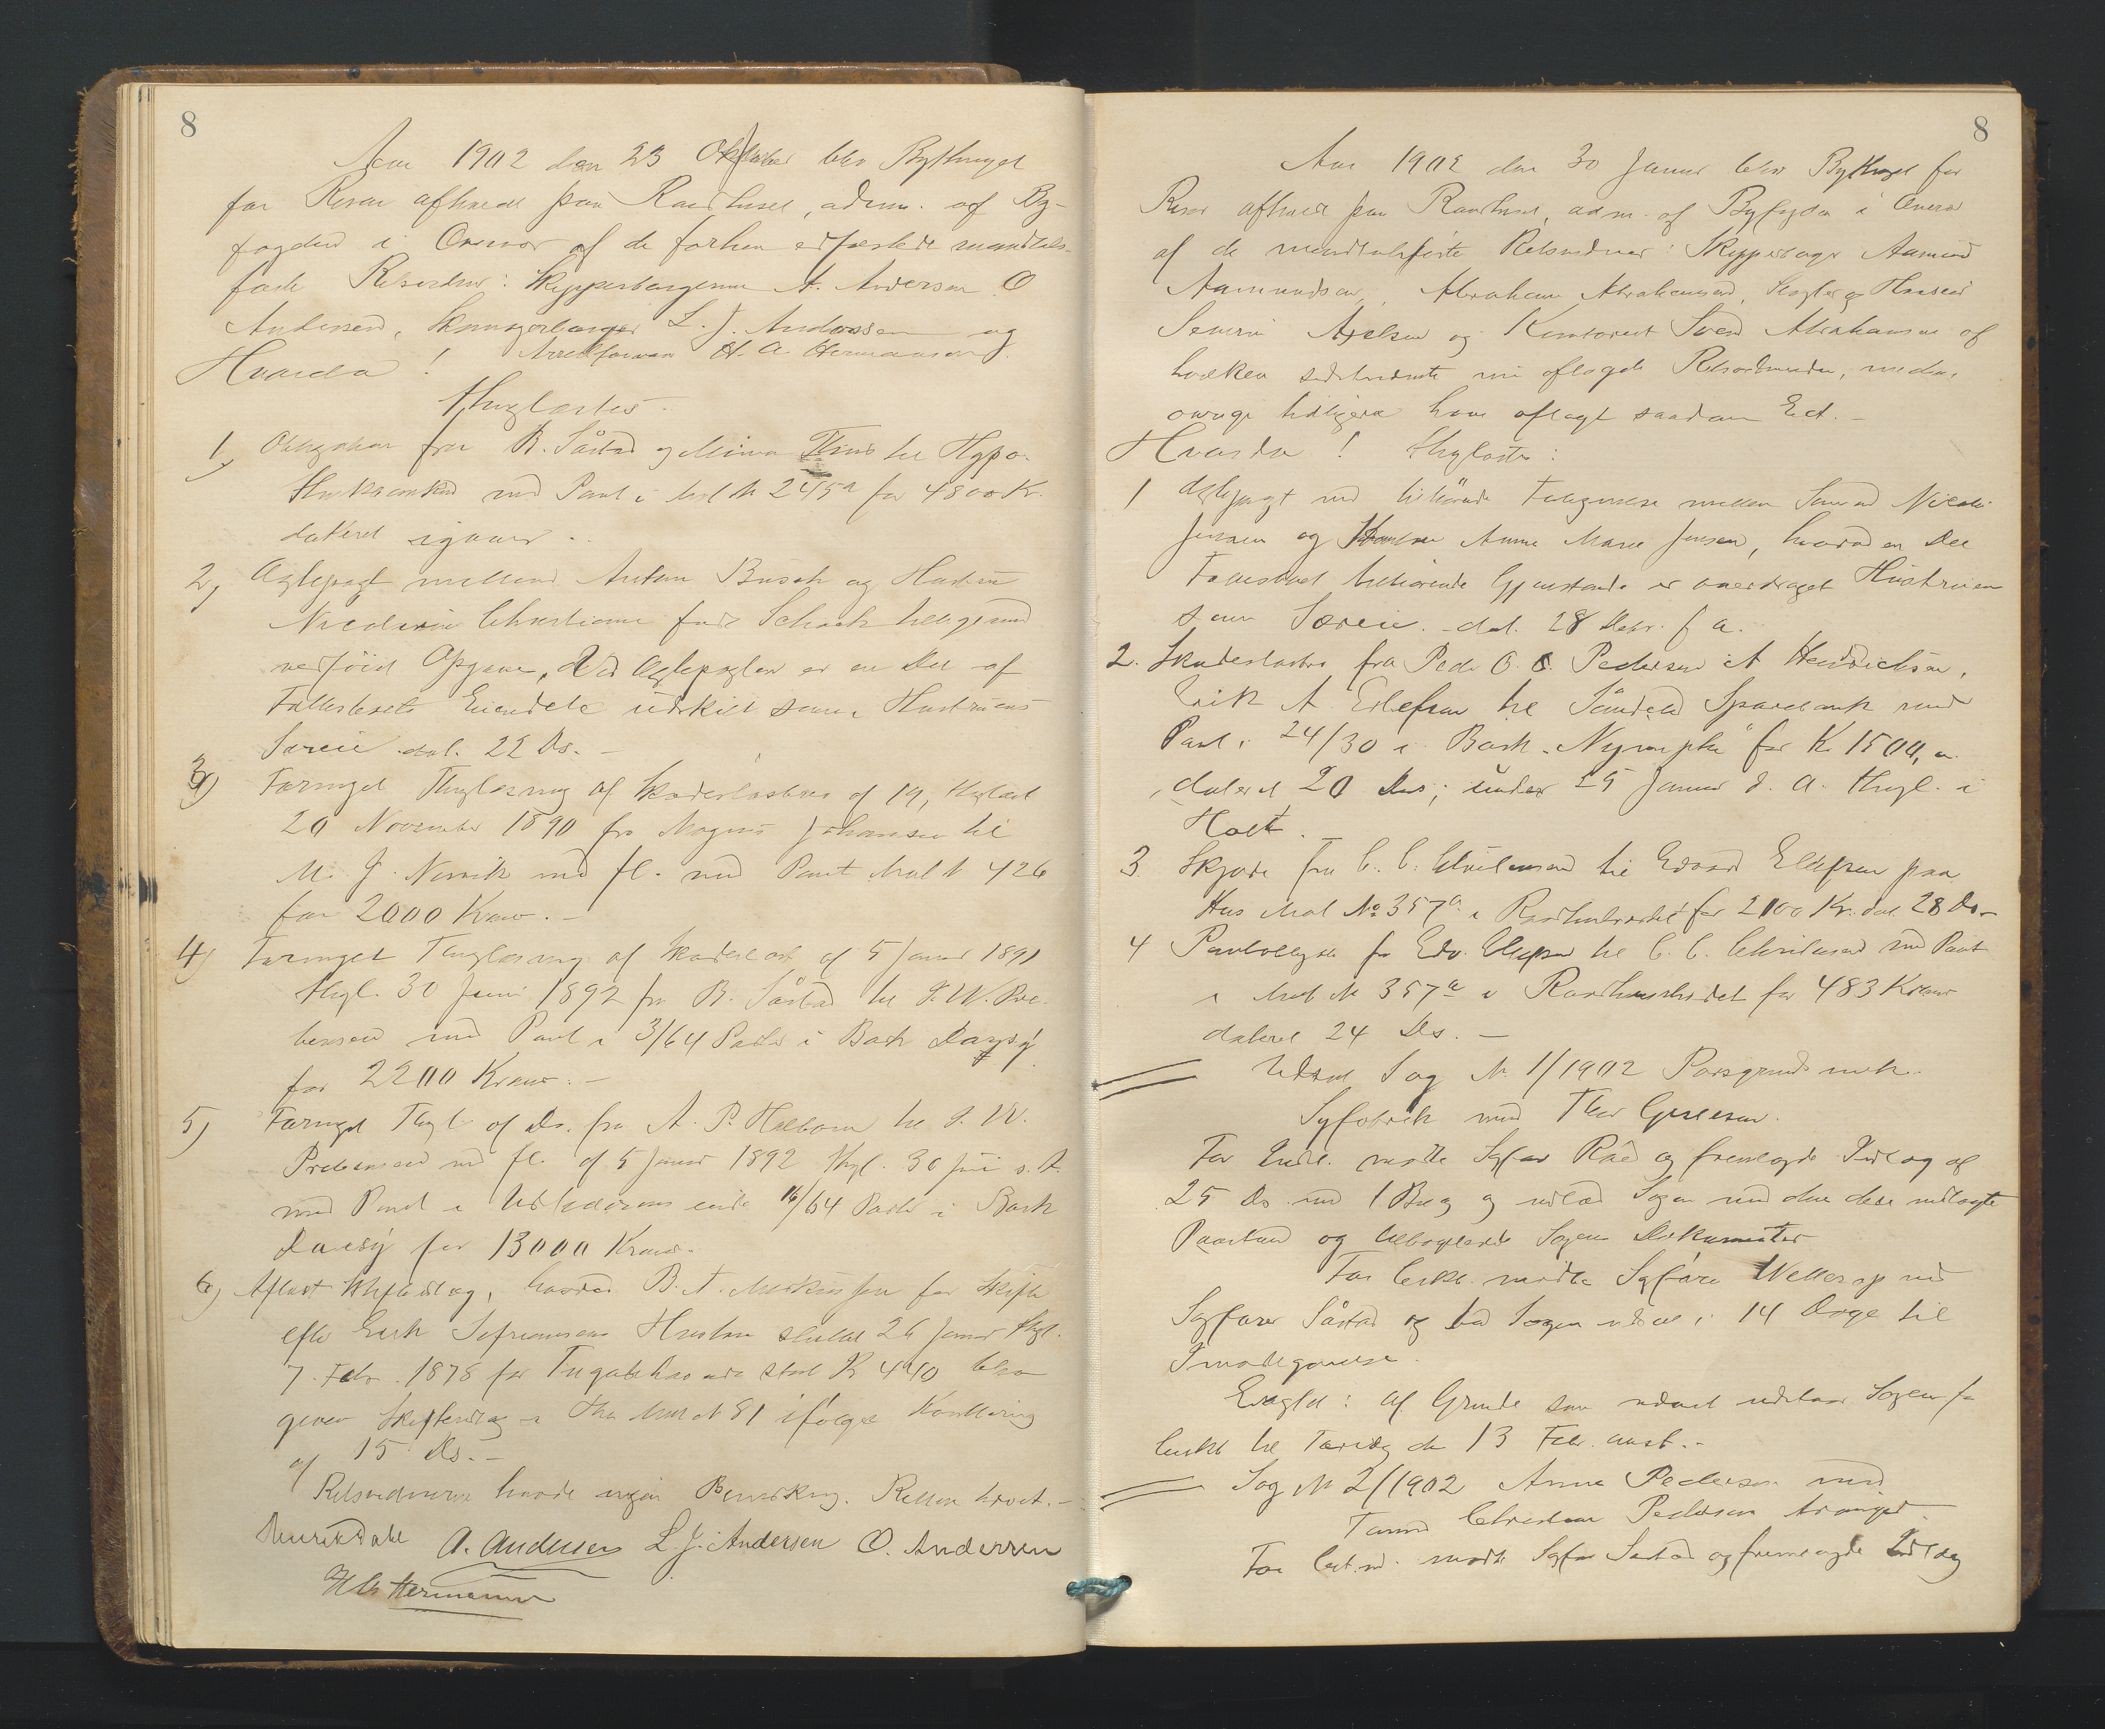 8
Aar 1902 den 23 Oktober blev Bythinget
for Risør afholdt paa Raadhuset, adm. af By-
fogden i Overvær af de forhen edfæstede mandtals-
førte Retsvidner: Skipperborgerne A. Andersen O
Andersen, L. J. Andersen og
Arrestforvar H. A. Hermansen
Hvorda!
Thinglæstes.
1, Obligation fra B. Sårtad og Mina til Hypo-
thekbanken med Pant i Mat № 245a for 4800 Kr.
dateret igaar.
2, Ægtepagt mellem Anton Busch og Hustru
Nicoline Christiane født Schack tilligemed
vedføiet Opgave, Ved Ægtepagten er en Del af
Fællesboets Eiendele udskilt som Hustruens
Særeie dat. 22 Ds. -
3) Fornyet Thinglæsning af Skadesløsbrev af 19, thglæst
20 November 1890 fra Magnus Johansen til
M. J. med fl. med Pant Mat № 426
for 2000 Kroner. -
4) Fornyet Thinglæsning af Skadesløst af 5 Januar 1891
thgl. 30 Juni 1892 fra B. Sårtad til P. W. Pre-
bensen med Pant i 3/64 Parter i Bark Daysy
for 2200 Kroner. -
5) Fornyet Thgl. af Do. fra A. P. til P. W.
Prebensen med fl. af 5 Januar 1892 thgl. 30 Juni s. A.
med Pant i Udstederens eiende 16/64 Parter i Bark
Daisy for 13000 Kroner.
6) Aflyst Skifteudlæg, hvorved B. A. Markussen før Skifte
efter Erik Hustru sluttet 26 Januar thgl.
7. Febr. 1878 for Tilgodehavende stort Kr 440 blev
given Skifteudlæg i Hus Mat № 81 ifølge Kvittering
af 15 Ds. -
Retsvidnerne havde ingen Bemerkning. Retten hævet. -
A. Andersen L. J. Andersen O. Andersen
H A Hermansen
8
Aar 1902 den 30 Januar blev Bythinget for
Risør afholdt paa Raadhuset, adm. af Byfogden i Overvær
af de mandtalsførte Retsvidner: Skipperborger Aamund
Aamundsen, Abraham Abrahamsen, Slagter Hansen
Severin Axelsen og Kontorist Sven Abrahamsen af
hvilken sidstnævnte nu aflagde Retsvidneeden, medens
øvrige tidligere have aflagt saadan Ed. -
Hvorda! thglæstes:
1 Ægtepagt med tilhørende Fortegnelse mellem Samuel Nicolai
Jensen og Hustru Anne Marie Jensen, hvorved en Del
Fællesboet tilhørende Gjenstande er overdraget Hustruen
som Særeie. dat. 28 Debr. f A.
2. Skadesløsbrev fra Peder O. C. Pedersen, A Hendrichsen,
Erik A Ellefsen til Søndeled Sparebank med
Pant i 24/30 i Bark "Nymphe" for Kr 1500,
dateret 20 Ds; under 25 Januar d. A. thgl. i
Holt.
3. Skjøde fra C. C. Christensen til Edvard Ellefsen paa
Hus Mat № 357a i Raadhusbrødet for 2100 Kr. dat. 28 Ds -
4 Pantobligation fra Edv. Ellefsen til C. C. Christensen med Pant
i Mat № 357a i Raadhusbrødet for 483 Kroner
dateret 24 Ds. -
Udsat Sag № 1/1902 Porsgrunds mek.
Syfabrik mod Thor
For Indl. mødte Sagfører Röed og fremlagde Indlæg af
25 Ds med 1 Bilag og indlod Sagen med den deri nedlagte
Paastand og tilbageleverede Sagens Dokumenter
For Cskt. mødte Sagfører Wellerop ved
Sagfører Sårtad og bad Sagen udsat i 14 Dage til
Imødegaaelse.
Eragtet: af Grunde som anført udstaar Sagen for
Cskt til Torsdag den 13 Febr. næst. -
Sag № 2/1902 Anne Pedersen mod
Christian Pedersen
For mødte Sagfører Sårtad og fremlagde Indlæg